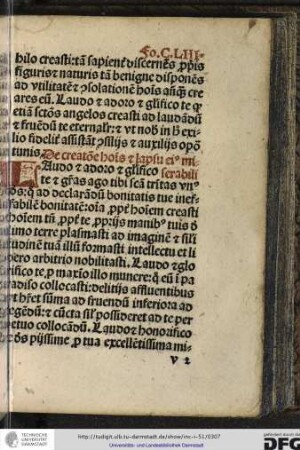 Fo. C. LIII
hilo creasti: tā sapient̄ discernēs ꝓprijs
figuris ⁊ naturis tā benigne disponēs
ad vtilitatē ⁊ ꝯsolationē hoīs añꝗ̄ cre
ares eū. Laudo ⁊ adoro ⁊ gl̄ifico te ꝙ
etiā sctōs angelos creasti ad laudādū
⁊ fruēdū te eternalr̄: ⁊ vt nob̄ in exi
lio fidelit̄ assistāt ⁊ auxilijs opor
tunis. De creatōe hoīs ⁊ lapsu eiꝰ mi
Laudo ⁊ adoro ⁊ gl̄ifico serabili
te ⁊ gr̄as ago tibi scā trītas vnꝰ
dꝰs: ꝗ ad declarādū bonitatis tue inef
fabilē bonitatē: oīa ꝓpt̄ hoīem creasti
hoīem tn̄ ꝓpt̄ te ꝓprijs manibꝰ tuis d
limo terre plasmasti ad imaginē ⁊ sili
itudinē tuā illū formasti intellectu et li
bero arbitrio nobilitasti. Laudo ⁊ glo
rifico te, ꝓ maxīo illo munere: ꝙ eū ī pa
radiso collocasti: delitijs affluentibus
vt hr̄et sūma ad fruendū inferiora ad
regēdū: ⁊ cūcta sil̄ possideret ad te per
petuo collocādū. Laudo ⁊ honorifico
te dꝰs pijssime ꝓ tua excellētissima mi-
v 2
TECHNISCHE UNIVERSITÄT DARMSTADT
http://tudigit.ulb.tu-darmstadt.de/show/inc-i-51/0307
Universitäts- und Landesbibliothek Darmstadt
gefördert durch die
DFG